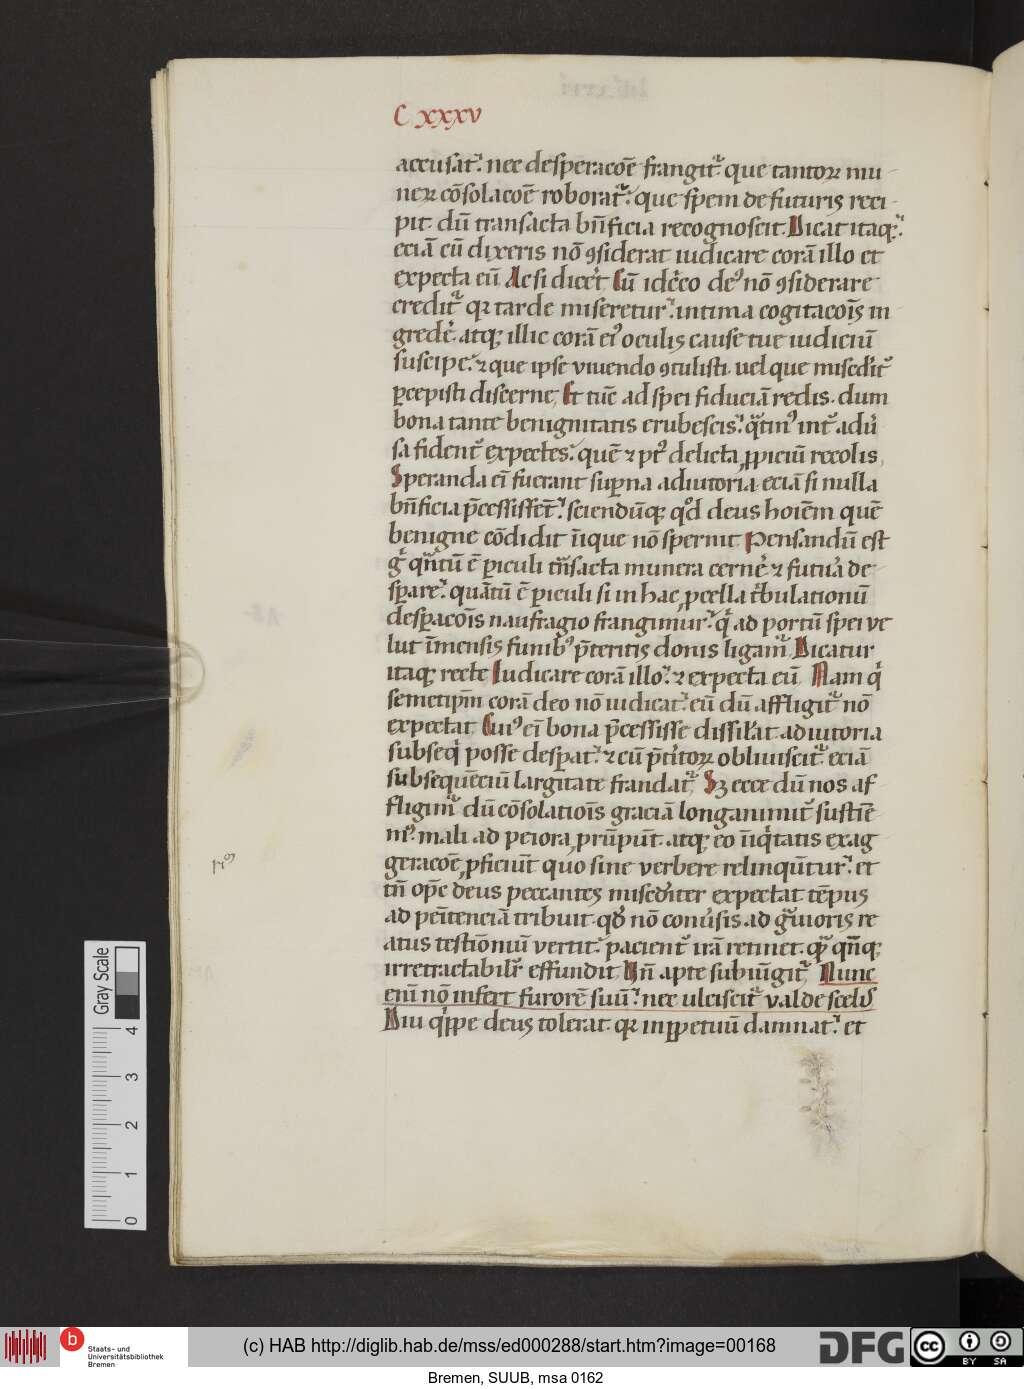 C xxxv
accusat᷑. nec desperacōe frangit᷑ que tantoꝝ mu-
neꝝ cōsolacōe roborat᷑. que spem de futuris reci-
pit. dū transacta bn̄ficia recognoscit. Dicat itaqꝫ.
eciā cū dixeris nō ꝯsiderat iudicare corā illo et
expecta eū Ac si dicet᷑ Cū idc̄co deꝰ nō ꝯsiderare
credit᷑ qꝛ tarde miseretur. intima cogitacōis in
greder̄ atqꝫ illic corā eiꝰ oculis cause tue iudiciū
suscipe. ⁊ que ipse viuendo ꝯtulisti. uel que misedit᷑
ꝑcepisti discerne. Et tūc ad spei fiduciā redis. dum
bona tante benignitatis erubescis. q̄tinꝰ int᷑ adu᷑
sa fident᷑ expectes. quē ⁊ pꝰ delicta ꝓpiciū recolis.
Speranda ei᷑ fuerant suꝑna adiutoria. eciā si nulla
bn̄ficia p̄cessissēt. sciendūqꝫ qd̓ deus hoīem quē
benigne cōdidit īique nō spernit Pensandū est
gͥ qn̄tū ē ꝑiculi tn̄sacta munera cerne᷑ ⁊ futu᷑a de
sꝑare. quātū ē ꝑiculi si in hac ꝓcella tͥbulationū
desꝑacōis naufragio frangimur. qͥ ad portū spei ve
lut īmensis funibꝰ p̄teritis donis ligam᷑ Dicatur
itaqꝫ recte Iudicare corā illo. ⁊ expecta eū. Nam qͥ
semetip̄m corā deo nō iudicat. eū dū affligit᷑ nō
expectat Cuiꝰ ei᷑ bona p̄cessisse dissil̓at adiutoria
subseqͥ posse desꝑat. ⁊ cū p̄t̓itoꝝ obliuiscit᷑. eciā
subsequēciū largitate fraudat᷑. Sꝫ ecce dū nos af
fligim᷑ dū cōsolatiōis graciā longanimit᷑ sustiē
nꝰ. mali ad peiora ꝓrūpūt. atqꝫ eo īiqͥtatis exag
geracōe ꝓficiūt quo sine verbere relinquūtur. et
tn̄ op̄e deus peccantes misedit᷑ter expectat. tēpus
ad peītenciā tribuit. qd̓ nō conu᷑sis ad gͣuioris re
atus testiōniū vertit. pacient᷑ irā retinet. qꝫ qn̄qꝫ
irretractabilr᷑ effundit. Vn̄ apte subiūgit᷑ Nunc
eni᷑ nō infert furorē suū. nec ulciscit᷑ valde scel᷑
Diu qͥppe deus tolerat. qꝛ inꝑpetuū damnat. et
Gray Scale
4
3
2
1
0
Staats- und
Universitätsbibliothek
Bremen
(c) HAB http://diglib.hab.de/mss/ed000288/start.htm?image=00168
DFG
cc BY SA
Bremen, SUUB, msa 0162